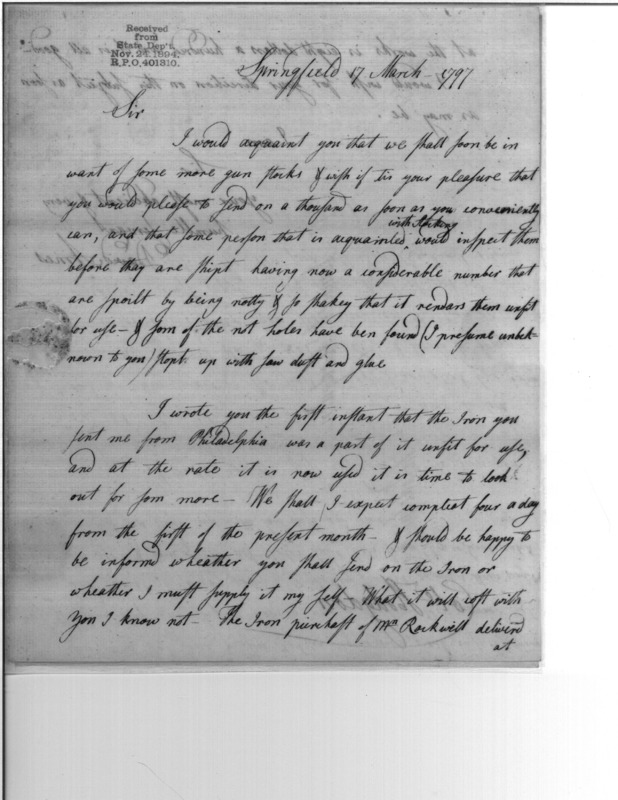 Received
from
State Dep't.
Nov. 24. 1894.
R.P.O. 401310.
Springfield 17 March 1797
Sir
I would acquaint you that we shall soon be in
want of some more gun stocks & wish if tis your pleasure that
you would please to send on a thousand as soon as you conveniently
can, and that some person that is acquainted with Stocking would inspect them
before thay are shipt having now a considerable number that
are spoilt by being notty & so shakey that it rendars them unfit
for use — & som of the not holes have ben found (I presume unbek-
nown to you) stopt up with saw dust and glue
I wrote you the first instant that the Iron you
sent me from Philadelphia was a part of it unfit for use,
and at the rate it is now used it is time to look
out for som more — We shall I expect compleat four a day
from the first of the present month — & should be happy to
be informd wheather you shall send on the Iron or
wheather I must supply it my self — What it will cost with
you I know not — The Iron purchast of Mr. Rockwell deliverd
at